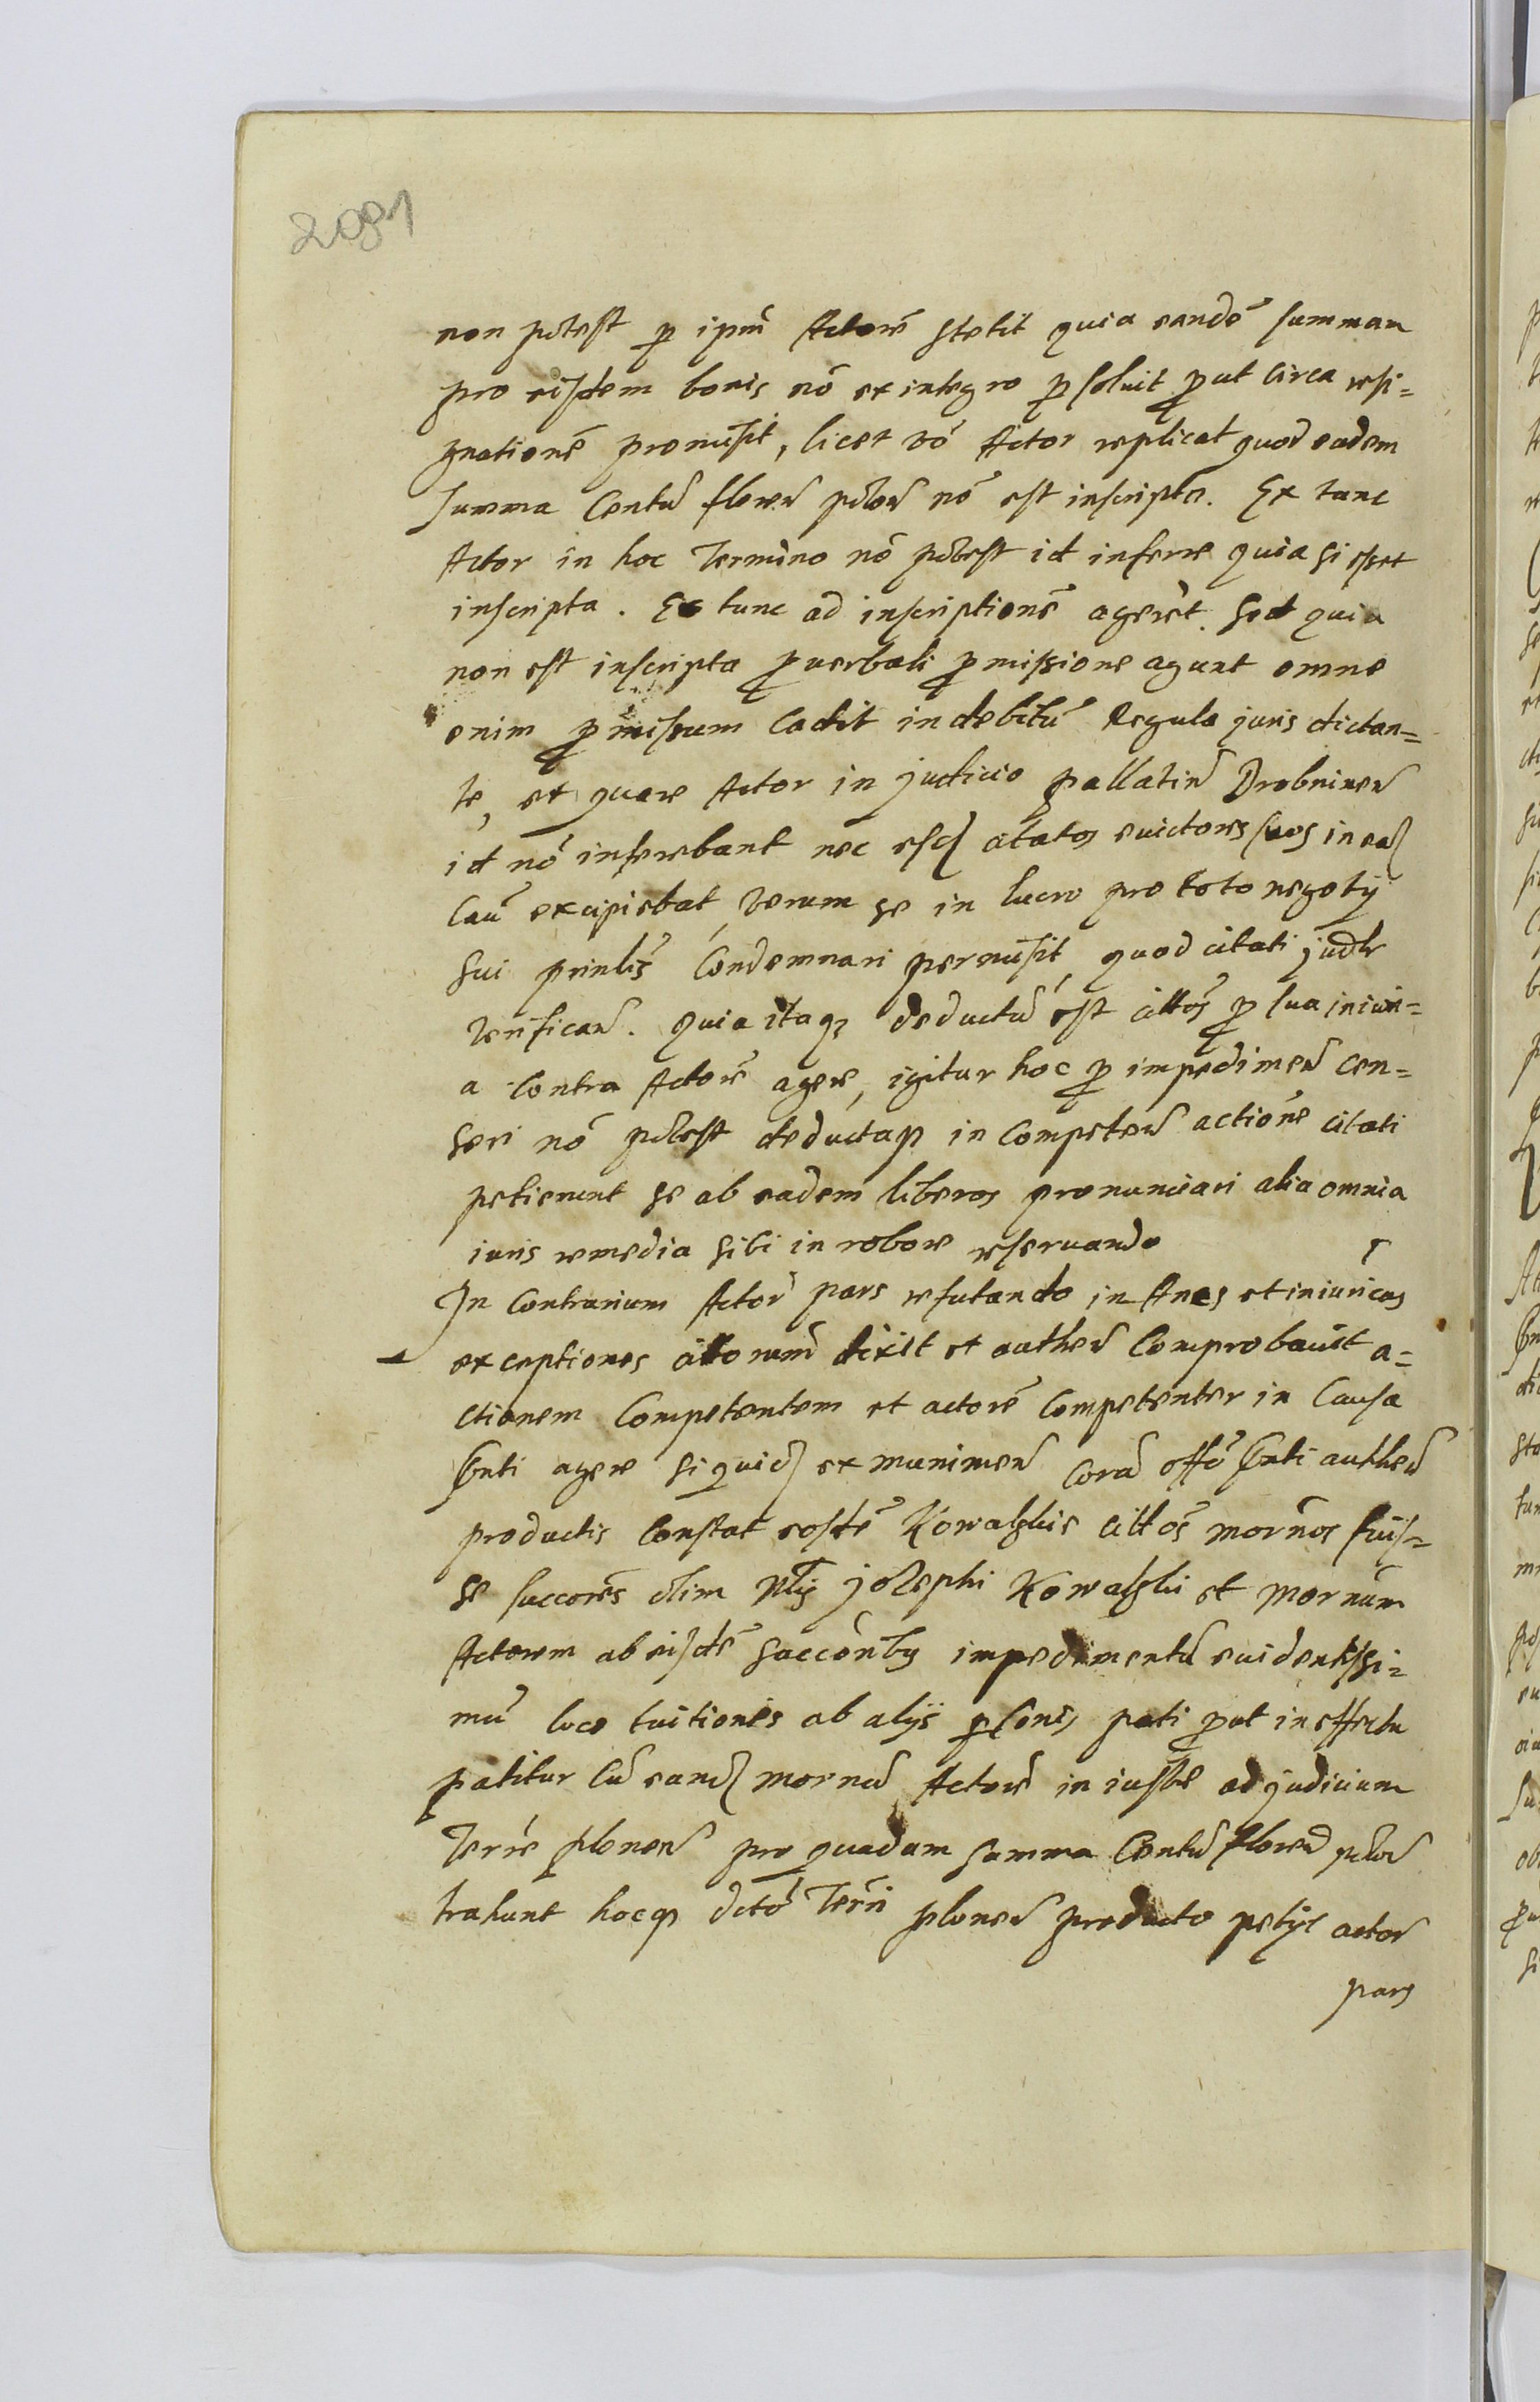 2091
non ptest p ipm̃ Actorẽ stetit quia eandẽ summam
pro eisdem bonis nõ ex integro psoluit put circa resi=
gnationẽ promisit, licet võ Actor replicat quod eadem
summa Centũ floreñ ptlor̃ nõ est inscripta. Ex tunc
Actor in hoc Termino nõ ptest id inferre quia si esset
inscripta. Ex tunc ad inscriptionẽ ageret. Sed quia
non est inscripta p verbali pmissione agunt omne
enim pmissum cadit in debitũ Regula juris dictan=
te, et quare Actor in judicio pallatiñ Drobnineñ
id nõ inferebant nec citatos euictores suos in ea
Cau excipiebat, verum se in lucro pro toto negotÿ
sui prinlis Condemnari permisit, quod citati judr
verificar̃. Quia itaq deductũ est citos p sua iniuri=
a contra Actorẽ agere, igitur hoc p impedimeñ cen=
seri nõ ptest deductaq in Competeñ actione citati
petierunt se ab eadem liberos pronunciari alia omnia
iuris remedia sibi in robore reseruando
In Contrarium Actor̃ pars refutando inanes et iniuricas
exceptiones cittorum dixit et autheñ Comprobauit a=
ctionem Competentem et actorẽ Competenter in Causa
pnti agere siquid ex munimeñ Corã offõ pnti autheñ
productis Constat eosdẽ Kowalskie cittos mornos fuis=
se succores olim Nlis josephi Kowalski et mornum
Actorem ab eisdẽ succornbs impedimentũ euidentissi=
mũ loco tuitionis ab alÿs psonis pati put in effectu
patitur Cũ eand mornũ Actorẽ in iuste ad judicium
Terre ploneñ pro quadam summa Centũ floreñ ptlor̃
trahunt hocq dctõ Terri ploneñ producto petÿt actor̃
pars